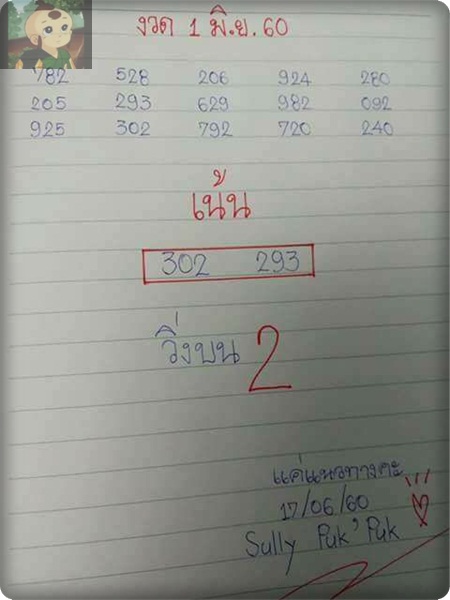 งวด 1 มิ.ย. 60
782 528 206 924 280
205 293 629 982 092
925 302 792 720 240
เน้น
302 293
วิ่งบน 2
แค่แนวทางคะ
17/06/60
Sully Puk' Puk